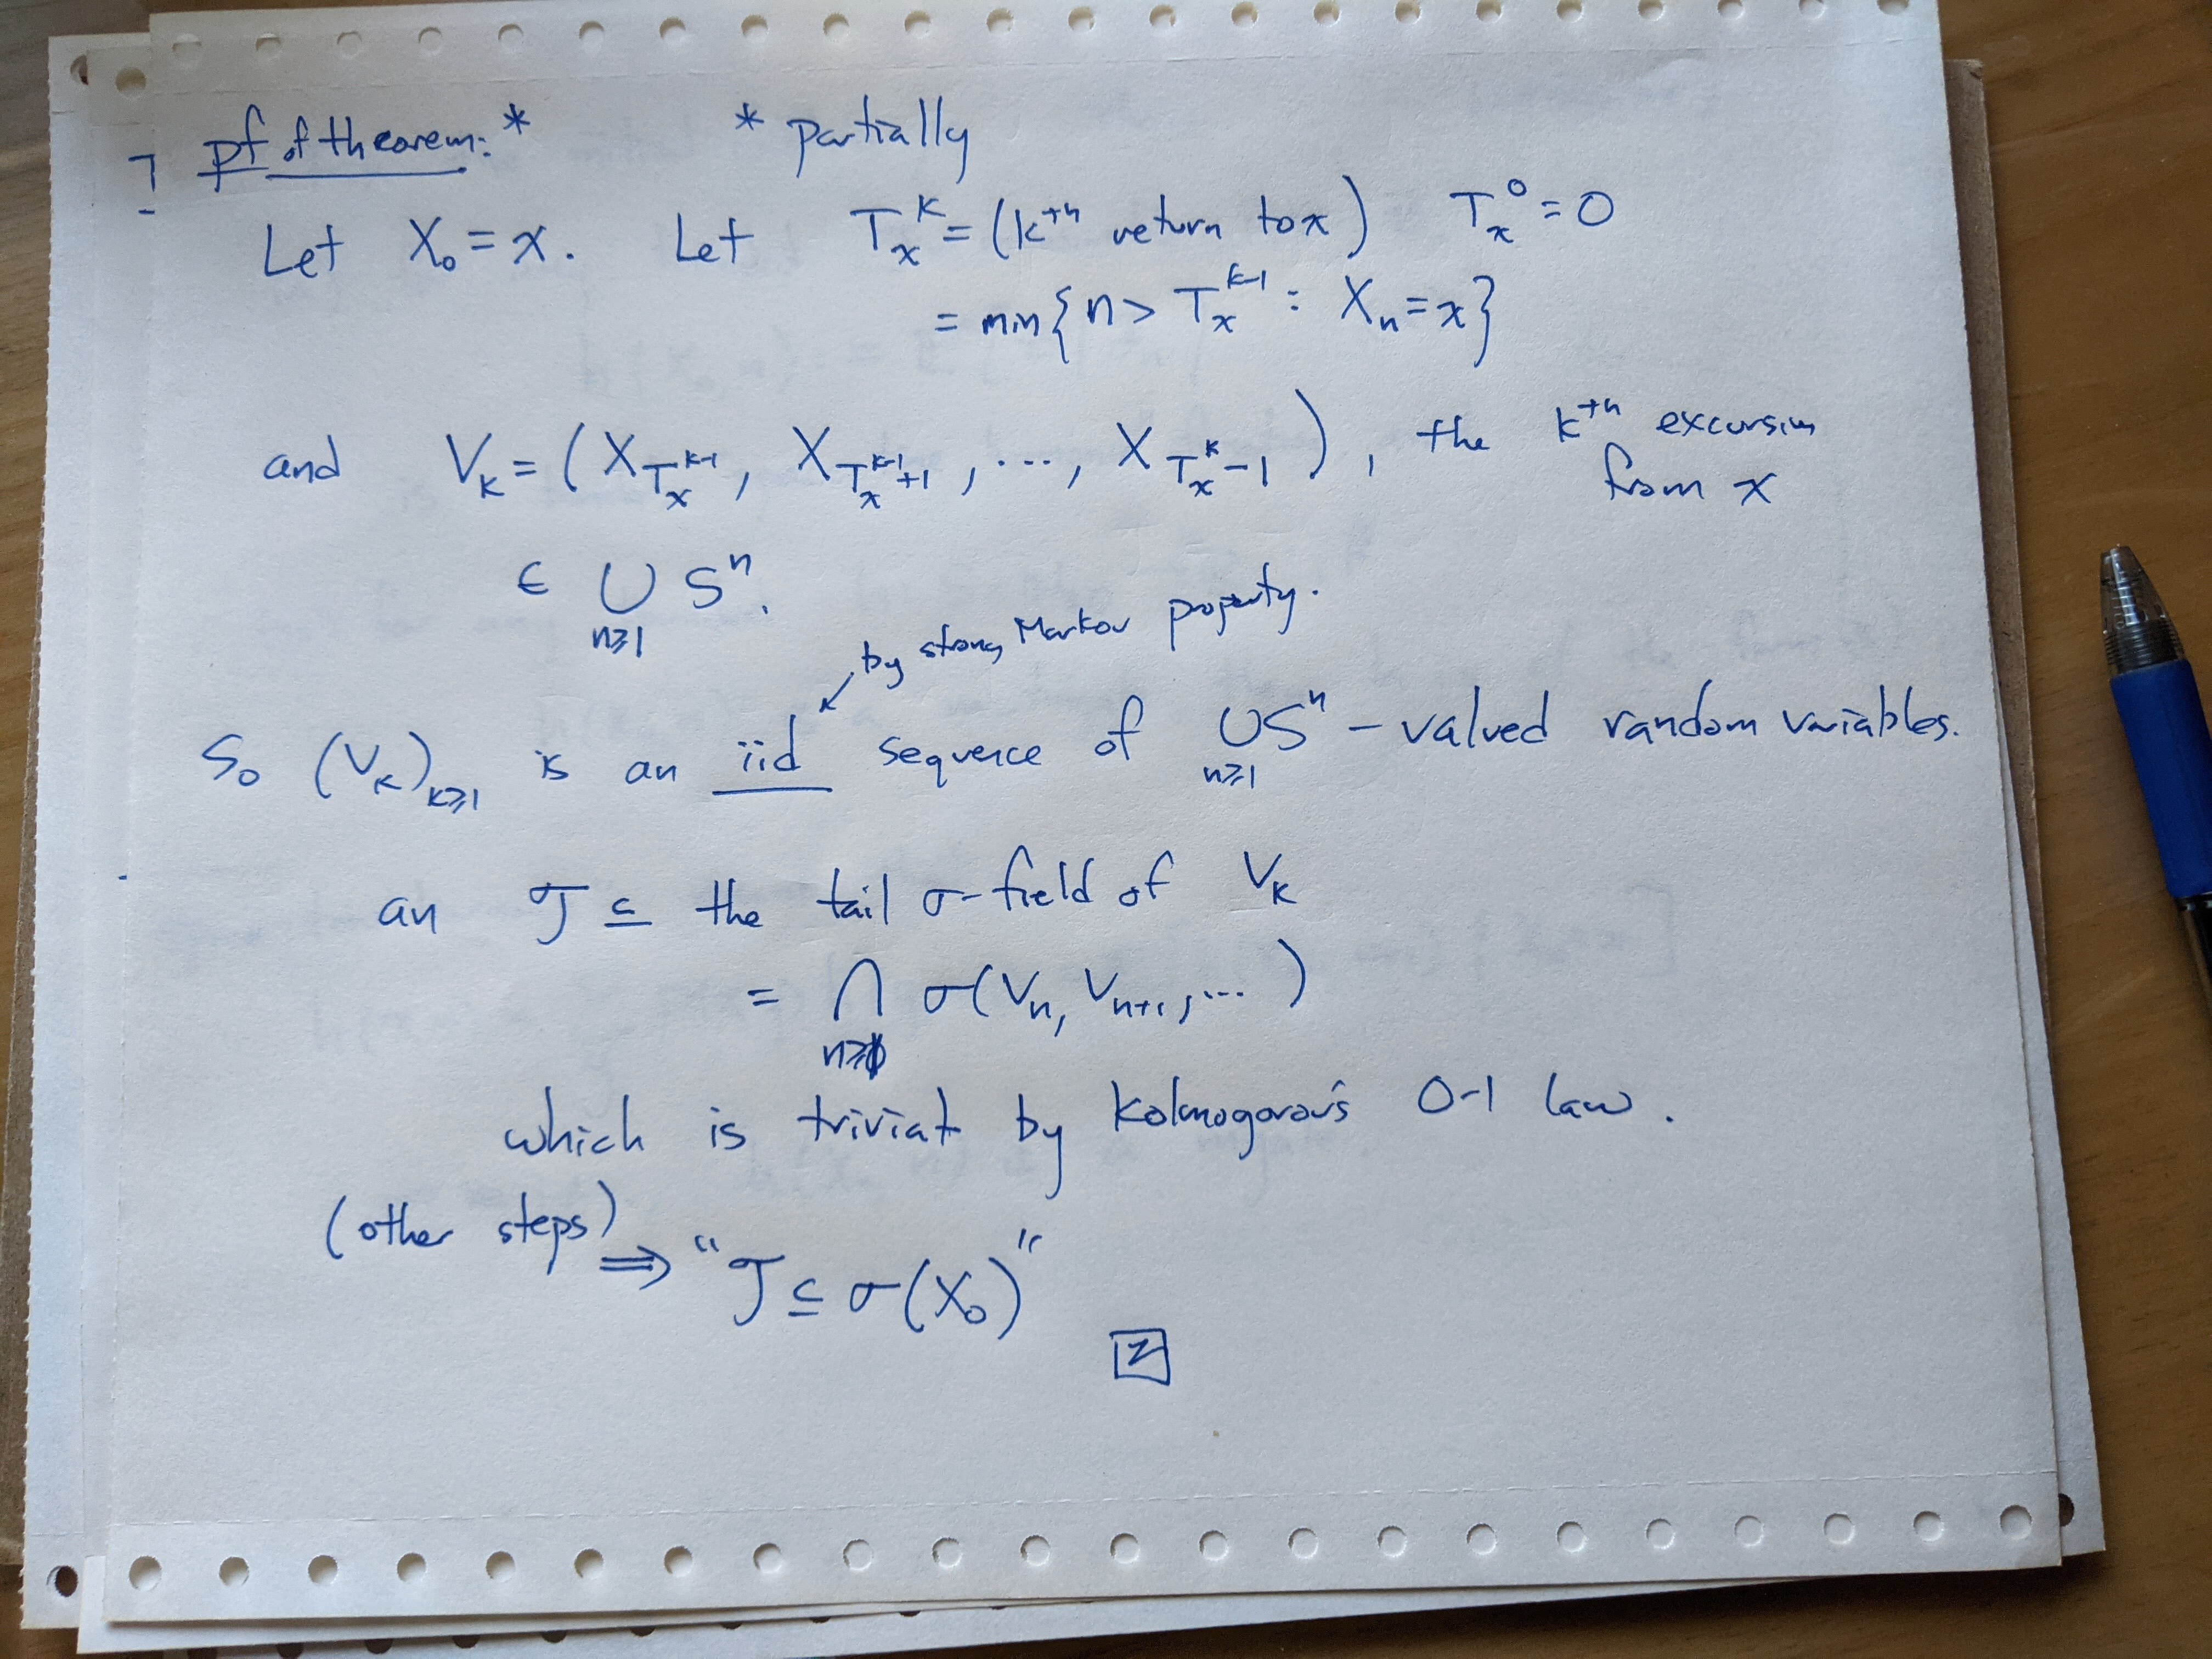 7 pf of theorem: * * partially
Let X₀ = x. Let Tₓᵏ = (kᵗʰ return to x) Tₓ⁰ = 0
= min{n > Tₓᵏ⁻¹ : Xₙ = x}
and Vₖ = (X_{Tₓᵏ⁻¹}, X_{Tₓᵏ⁻¹+1}, ..., X_{Tₓᵏ-1}), the kᵗʰ excursion
from x
∈ ∪_{n≥1} Sⁿ.
by strong Markov property.
So (Vₖ)_{k≥1} is an iid sequence of ∪_{n≥1} Sⁿ - valued random variables.
an 𝒯 ⊆ the tail σ-field of Vₖ
= ∩ σ(Vₙ, Vₙ₊₁, ...)
which is trivial by Kolmogorov's 0-1 law.
(other steps) ⇒ "𝒯 ⊆ σ(X₀)"